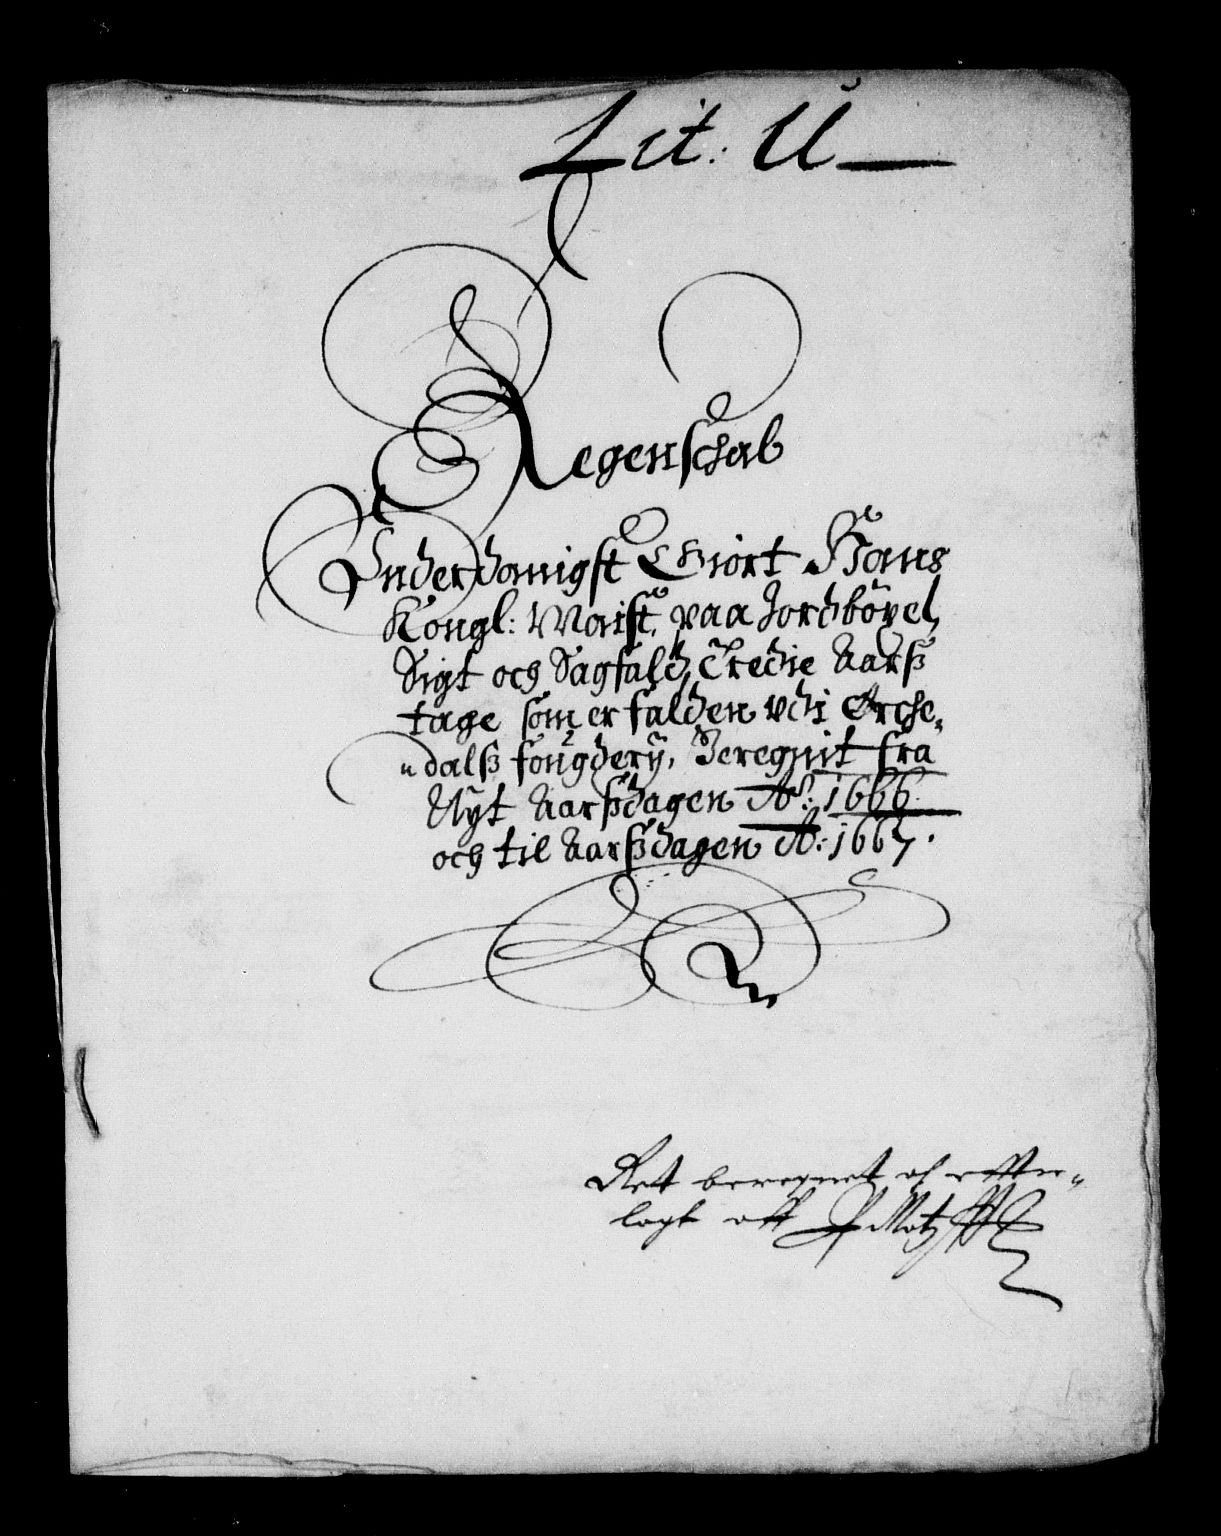 Lit: Ŭ
Regenschab
Underdanigst Giort Hans
Kongl: Maist, paa Jordbögel,
Sigt och Sagfald, Tredie Aarß
tage som er falden udi Orche„
„dalß fougderÿ, Beregnit fra
Nyt Aarßdagen Aõ: 1666.
och til Aarßdagen Aõ: 1667.
Rett beregnet och effter„
lagt aff